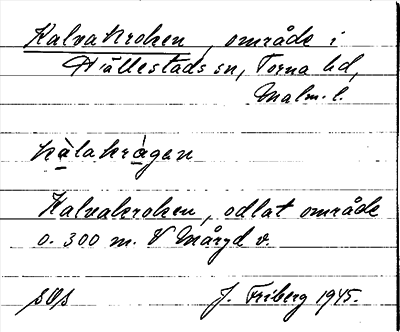 Kalvakroken, område i
Hällestads sn, Torna hd,
Malm. l.
kàlakrågen
Kalvakroken, odlat område
o. 300 m. V Måryd v.
J. Friberg 1945.